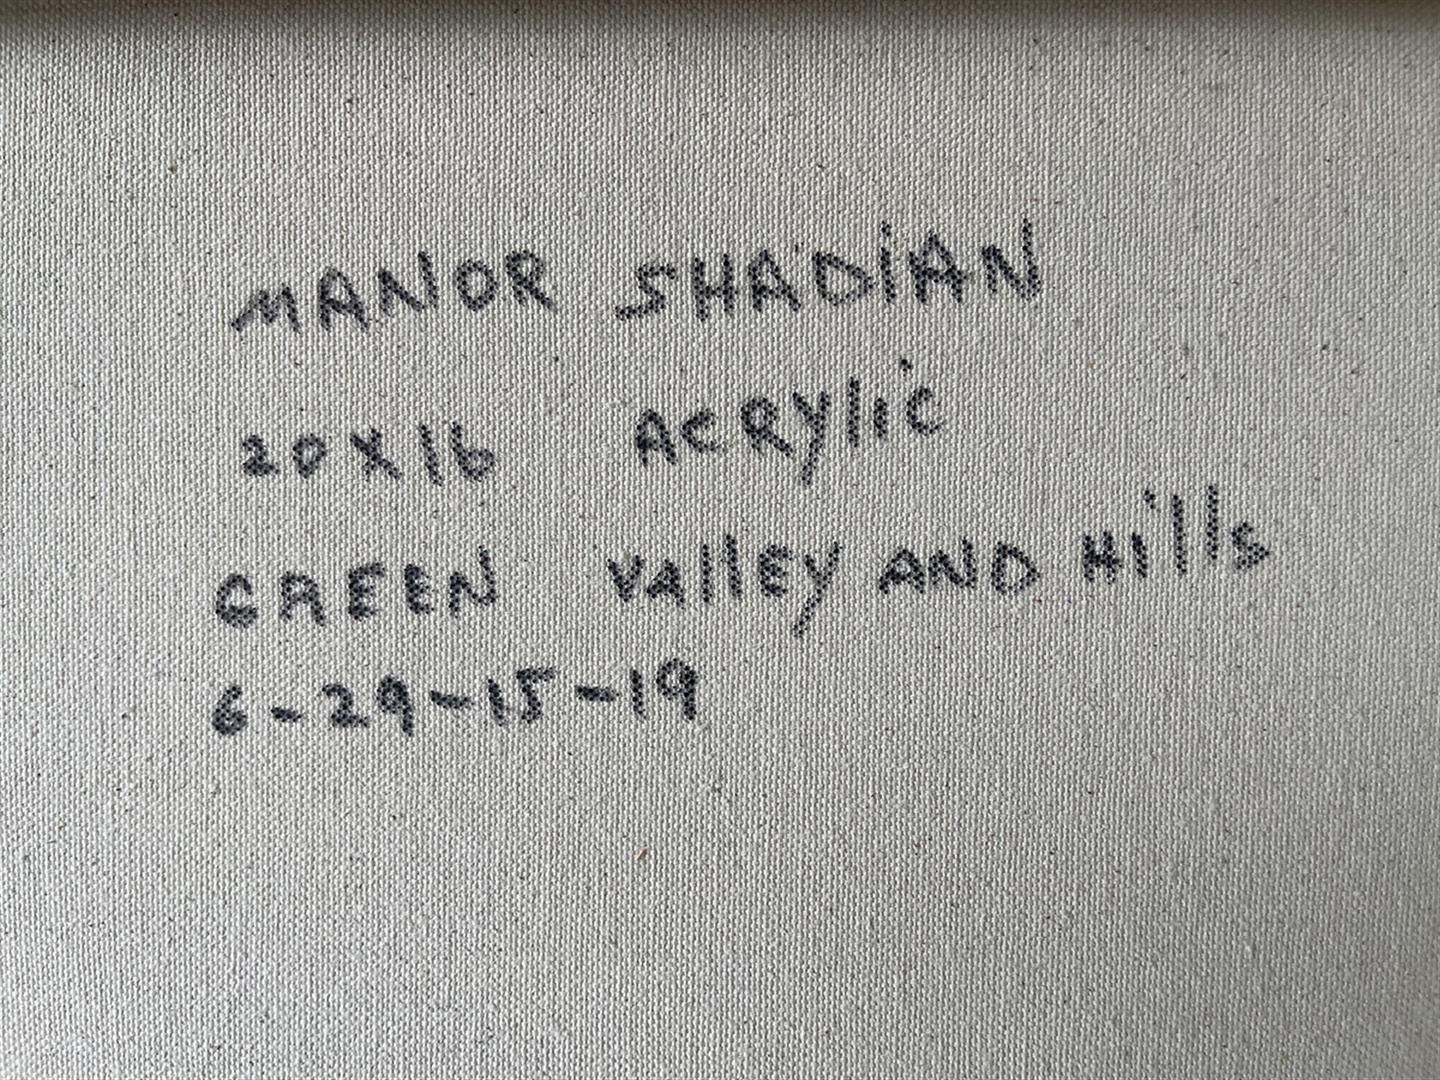 MANOR SHADiAN
20X16 ACRYlic
GREEN VAllEY AND Hills
6-29-15-19